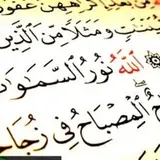 إِكْرَٰهِهِنَّ غَفُو
وَمَثَلًا مِّنَ الَّذِينَ
اللَّهُ نُورُ السَّمَٰوَٰ
الْمِصْبَاحُ فِي زُجَاجَ